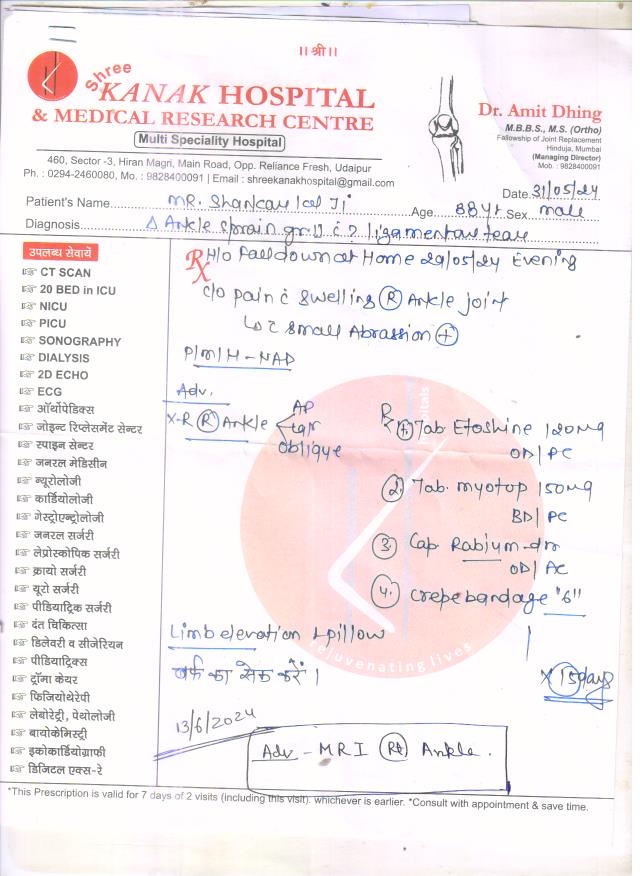 ॥ श्री ॥
Shree
KANAK HOSPITAL
& MEDICAL RESEARCH CENTRE
Multi Speciality Hospital
460, Sector -3, Hiran Magri, Main Road, Opp. Reliance Fresh, Udaipur
Ph. : 0294-2460080, Mo. : 9828400091 | Email : shreekanakhospital@gmail.com
Dr. Amit Dhing
M.B.B.S., M.S. (Ortho)
Fallowship of Joint Replacement
Hinduja, Mumbai
(Managing Director)
Mob. : 9828400091
Date 31/05/24
Patient's Name MR. Shankar lal Ji Age 88 yr Sex male
Diagnosis Δ Ankle sprain gr II c̄ ? ligamentary tear
उपलब्ध सेवायें
CT SCAN
20 BED in ICU
NICU
PICU
SONOGRAPHY
DIALYSIS
2D ECHO
ECG
ऑर्थोपेडिक्स
जोइन्ट रिप्लेसमेंट सेन्टर
स्पाइन सेन्टर
जनरल मेडिसीन
न्यूरोलोजी
कार्डियोलोजी
गेस्ट्रोएन्ट्रोलोजी
जनरल सर्जरी
लेप्रोस्कोपिक सर्जरी
क्रायो सर्जरी
यूरो सर्जरी
पीडियाट्रिक सर्जरी
दंत चिकित्सा
डिलेवरी व सीजेरियन
पीडियाट्रिक्स
ट्रॉमा केयर
फिजियोथेरेपी
लेबोरेट्री, पेथोलोजी
बायोकेमिस्ट्री
इकोकार्डियोग्राफी
डिजिटल एक्स-रे
Rx H/o Fall down at Home 29/05/24 Evening
c/o pain c̄ swelling (R) Ankle joint
↳ c̄ small Abrassion (+)
P/M/H - NAD
Adv.
X-R (R) Ankle AP
Lar
oblique
Rx 1. Tab Etoshine 120mg
OD | PC
2. Tab. myotop 150mg
BD | PC
3. Cap Rabium-dsr
OD | AC
4. crepe bandage "6"
Limb elevation 1 pillow
बर्फ का सेक करें ।
x 15 days
13/6/2024
Adv - MRI (Rt) Ankle.
rejuvenating lives
*This Prescription is valid for 7 days of 2 visits (including this visit). whichever is earlier. *Consult with appointment & save time.